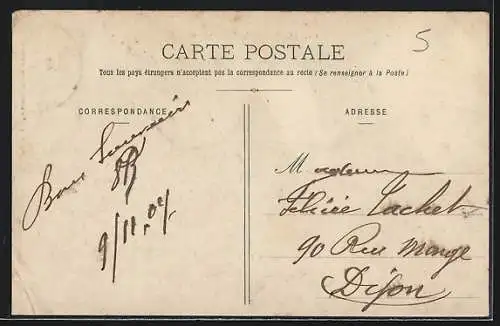 5
CARTE POSTALE
Tous les pays étrangers n'acceptent pas la correspondance au recto (Se renseigner à la Poste)
CORRESPONDANCE
ADRESSE
Bons Souvenirs
9/11.04
Madame
Tachet
90 Rue Monge
Dijon